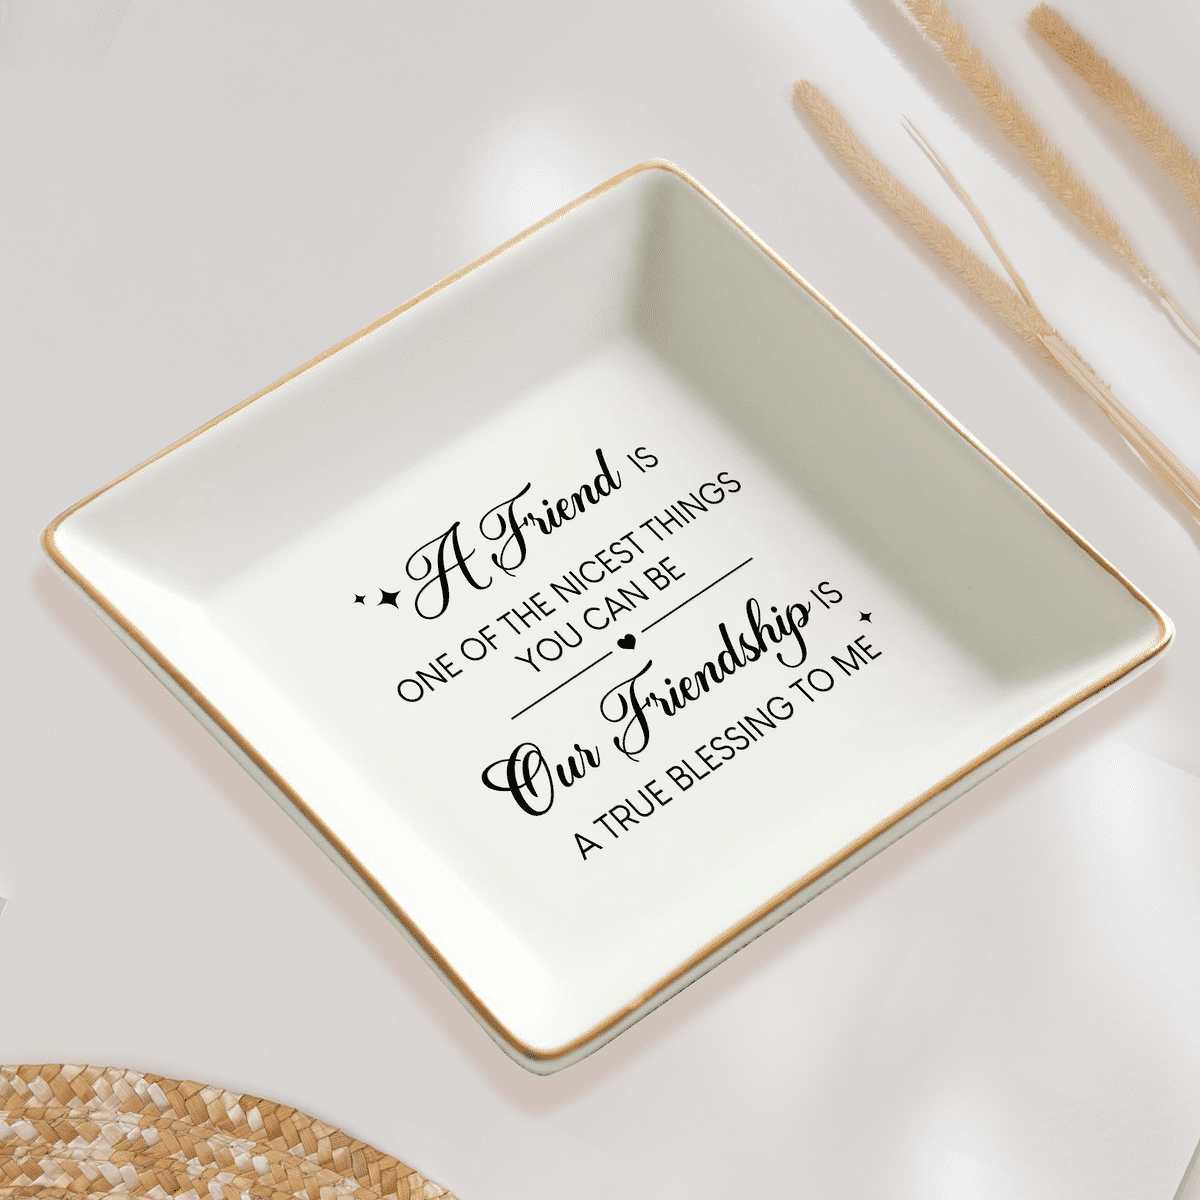 A Friend IS
ONE OF THE NICEST THINGS
YOU CAN BE
Our Friendship IS
A TRUE BLESSING TO ME